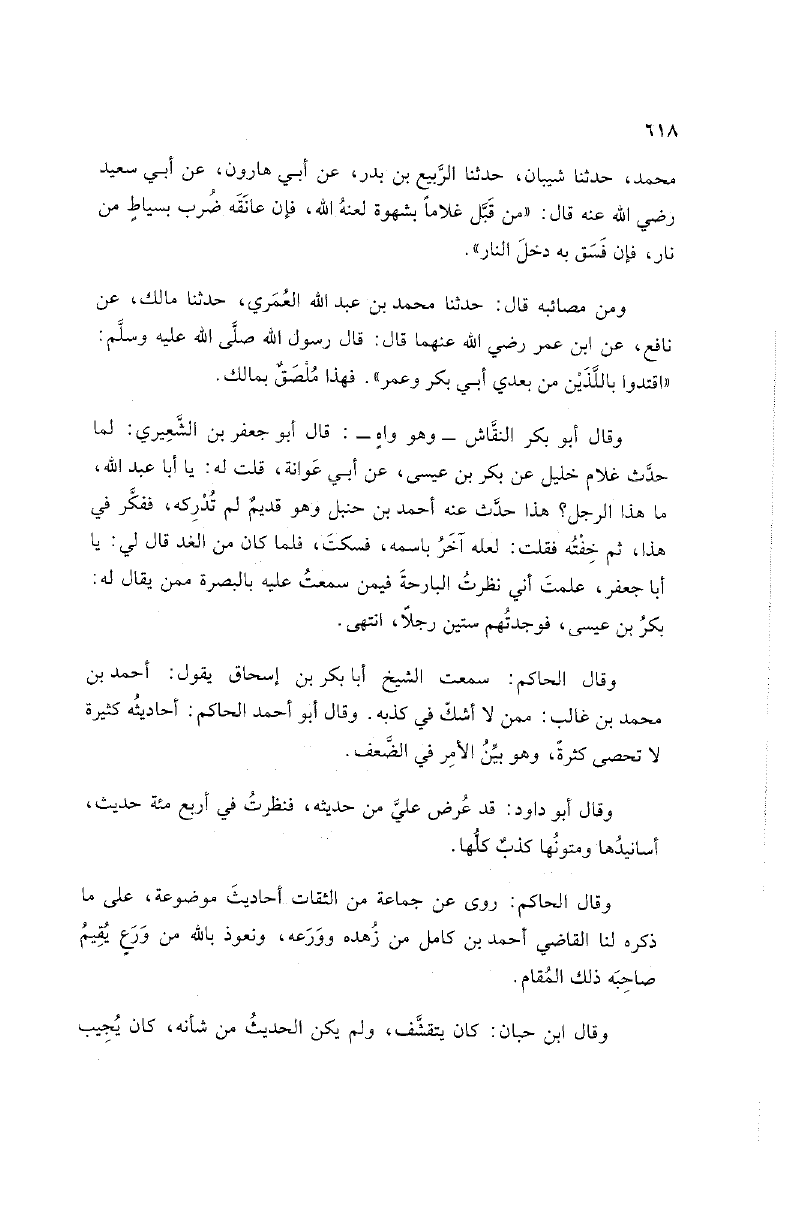 ٦١٨
محمد، حدثنا شيبان، حدثنا الرَّبيع بن بدر، عن أبي هارون، عن أبي سعيد
رضي الله عنه قال: «من قَبَّل غلاماً بشهوة لعنهُ الله، فإن عانَقَه ضُرب بسياطٍ من
نار، فإن فَسَق به دخلَ النار».
ومن مصائبه قال: حدثنا محمد بن عبد الله العُمَري، حدثنا مالك، عن
نافع، عن ابن عمر رضي الله عنهما قال: قال رسول الله صلَّى الله عليه وسلَّم:
«اقتدوا باللَّذَيْن من بعدي أبي بكر وعمر». فهذا مُلْصَقٌ بمالك.
وقال أبو بكر النقَّاش ــ وهو واهٍ ــ : قال أبو جعفر بن الشَّعِيري: لما
حدَّث غلام خليل عن بكر بن عيسى، عن أبي عَوانة، قلت له: يا أبا عبد الله،
ما هذا الرجل؟ هذا حدَّث عنه أحمد بن حنبل وهو قديمٌ لم تُدْرِكه، ففكَّر في
هذا، ثم خِفْتُه فقلت: لعله آخَرُ باسمه، فسكتَ، فلما كان من الغد قال لي: يا
أبا جعفر، علمتَ أني نظرتُ البارحةَ فيمن سمعتُ عليه بالبصرة ممن يقال له:
بكرُ بن عيسى، فوجدتُهم ستين رجلاً، انتهى.
وقال الحاكم: سمعت الشيخ أبا بكر بن إسحاق يقول: أحمد بن
محمد بن غالب: ممن لا أشكّ في كذبه. وقال أبو أحمد الحاكم: أحاديثُه كثيرة
لا تحصى كثرةً، وهو بيِّنُ الأمرِ في الضَّعف.
وقال أبو داود: قد عُرض عليَّ من حديثه، فنظرتُ في أربع مئة حديث،
أسانيدُها ومتونُها كذبٌ كلُّها.
وقال الحاكم: روى عن جماعة من الثقات أحاديثَ موضوعة، على ما
ذكره لنا القاضي أحمد بن كامل من زُهده ووَرَعه، ونعوذ بالله من وَرَعٍ يُقِيمُ
صاحِبَه ذلك المُقام.
وقال ابن حبان: كان يتقشَّف، ولم يكن الحديثُ من شأنه، كان يُجِيب